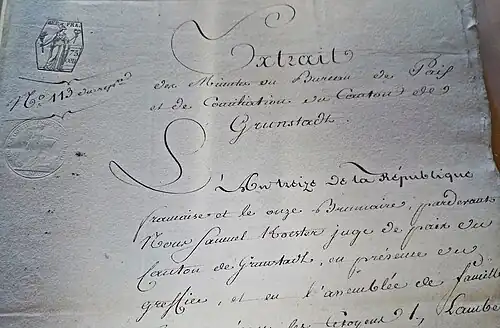 RÉP. FRA.
75
N.º 113 du rep.re
Extrait
des Minutes du Bureau de Paix
et de Conciliation du Canton de
Grunstadt.
L'An treize de la République
française et le onze Brumaire, pardevant
Nous Samuel Koester juge de paix du
Canton de Grunstadt, en présence du
greffier, et en l'assemblée de famille
les Citoyens 1, Lambe